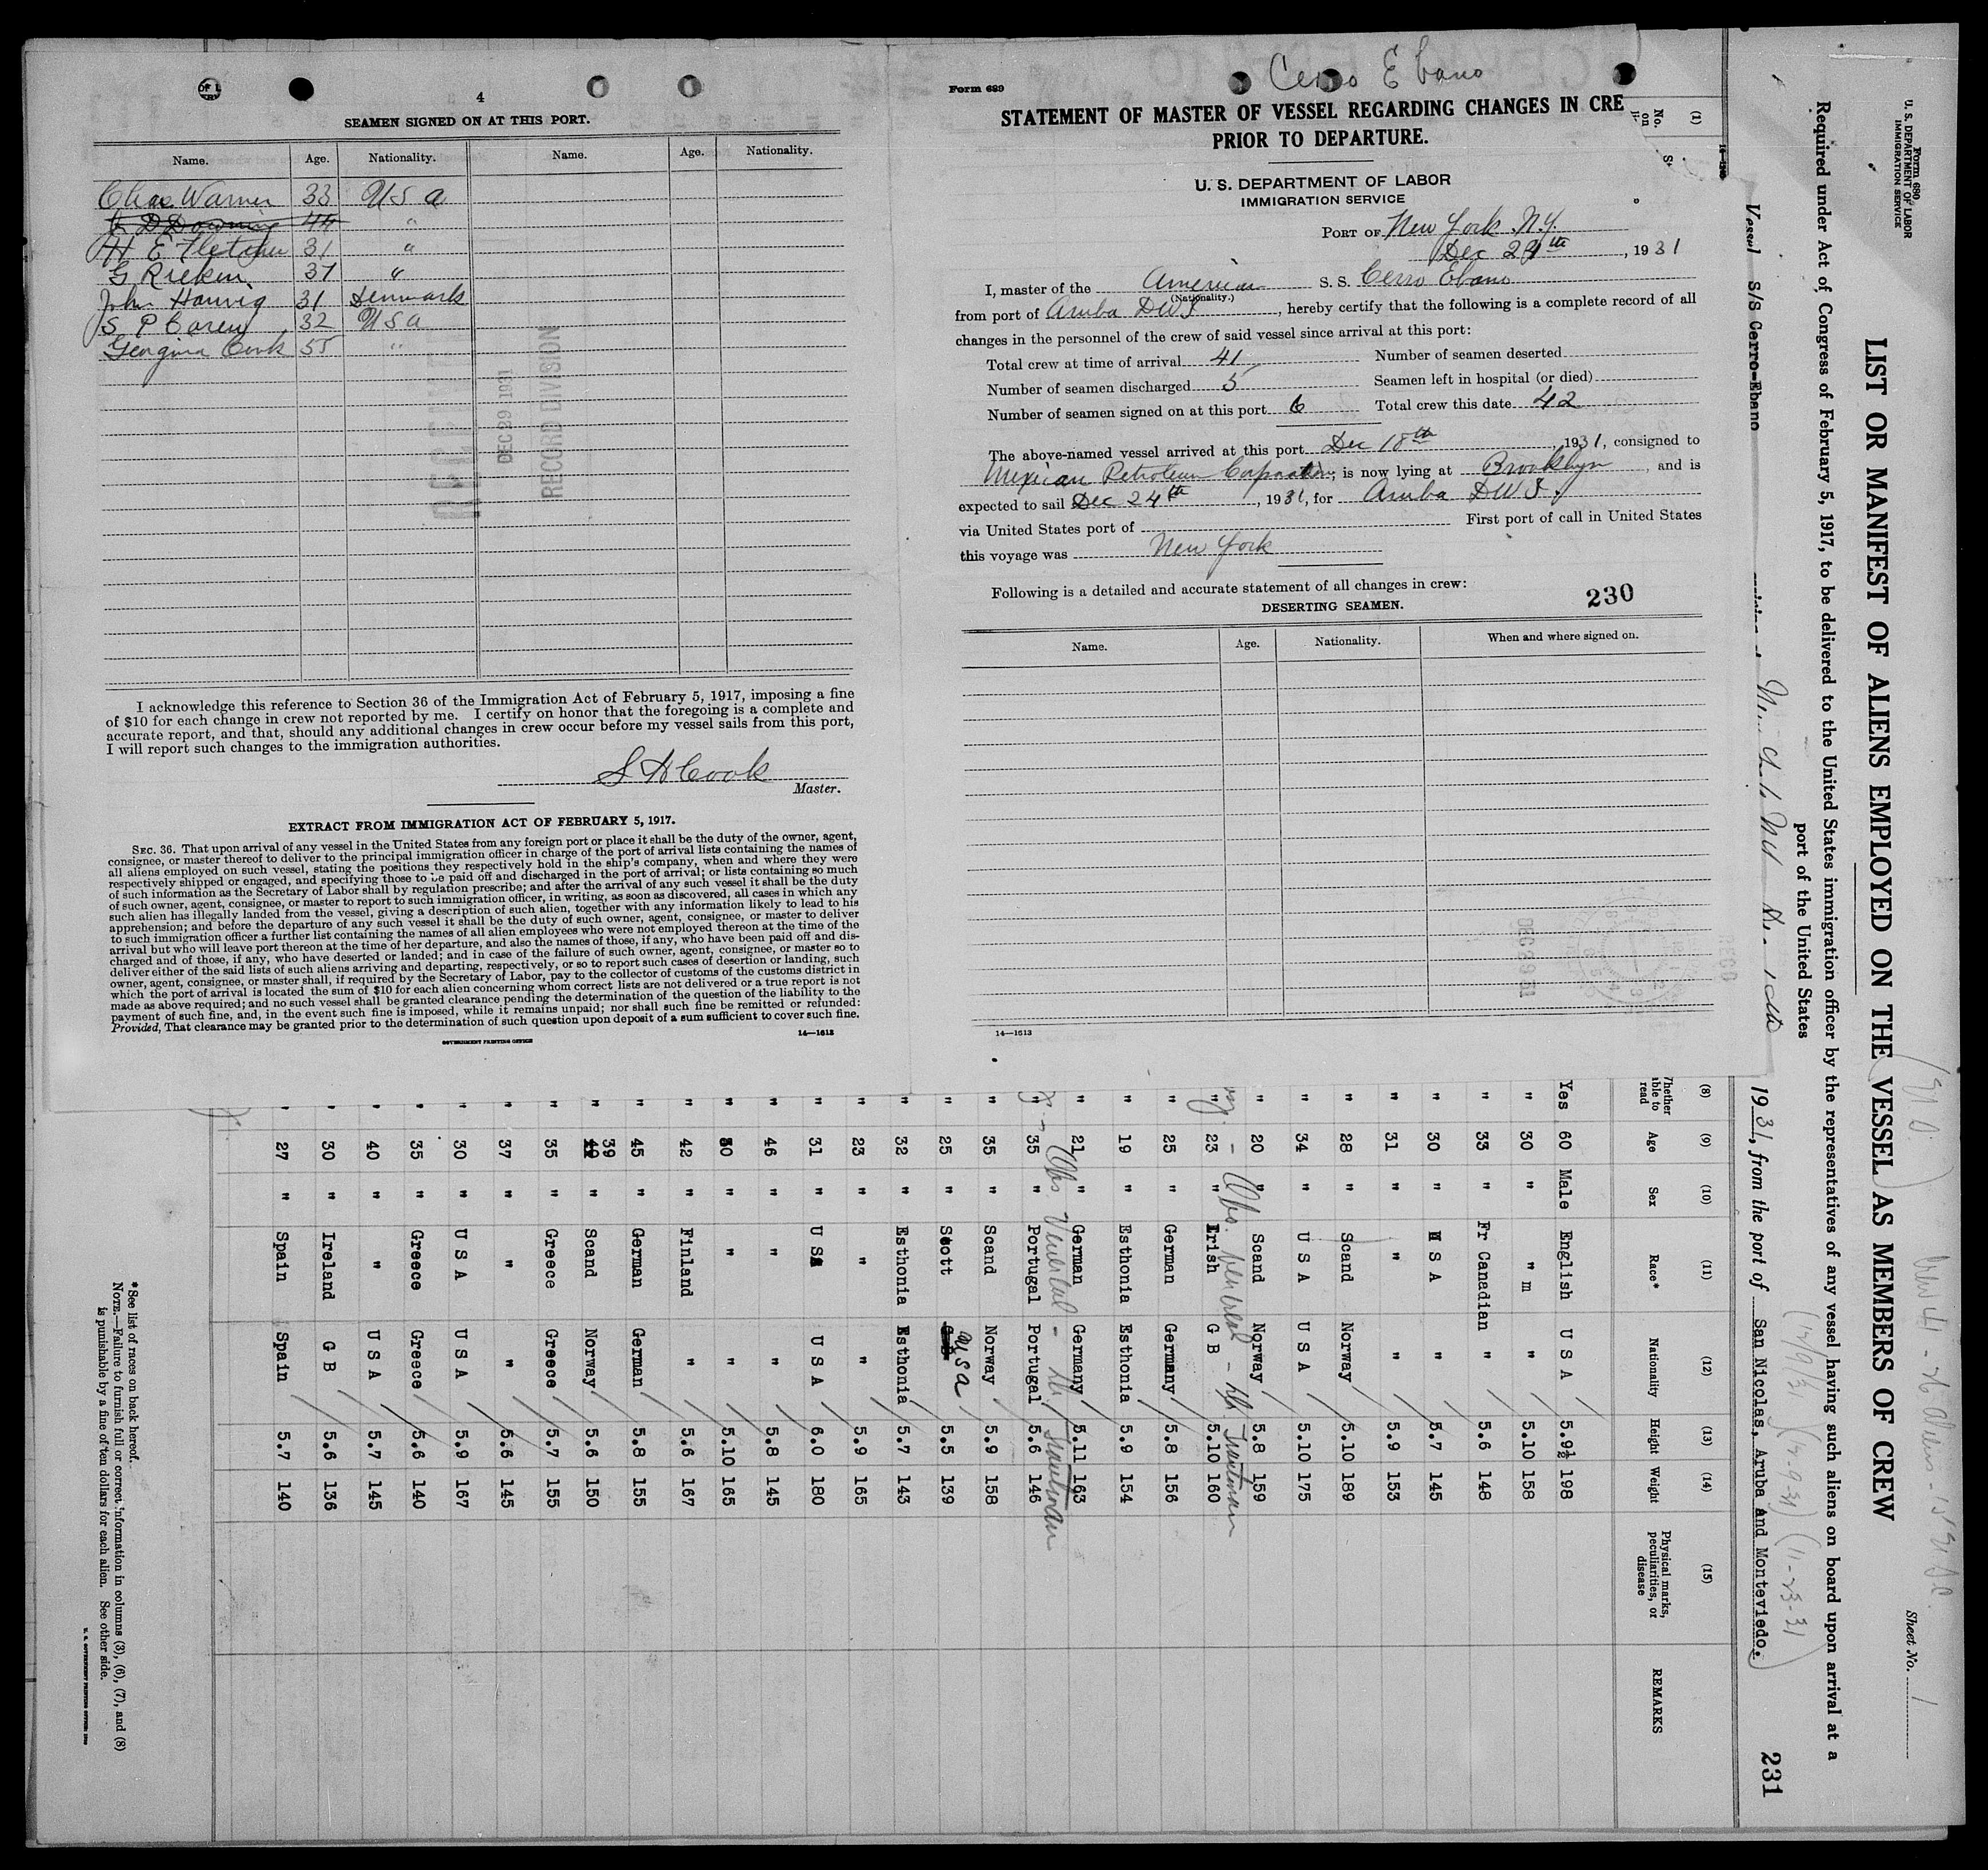 4
SEAMEN SIGNED ON AT THIS PORT.
Name. Age. Nationality. Name. Age. Nationality.
Chas Warner 33 U S A
D Downing 44 "
H E Fletcher 31 "
G Rieken 37 "
John Hannig 31 Denmark
S P Carey 32 U S A
Georgina Cook 55 "
RECORD DIVISION
DEC 29 1931
I acknowledge this reference to Section 36 of the Immigration Act of February 5, 1917, imposing a fine
of $10 for each change in crew not reported by me. I certify on honor that the foregoing is a complete and
accurate report, and that, should any additional changes in crew occur before my vessel sails from this port,
I will report such changes to the immigration authorities.
S H Cook
Master.
EXTRACT FROM IMMIGRATION ACT OF FEBRUARY 5, 1917.
SEC. 36. That upon arrival of any vessel in the United States from any foreign port or place it shall be the duty of the owner, agent,
consignee, or master thereof to deliver to the principal immigration officer in charge of the port of arrival lists containing the names of
all aliens employed on such vessel, stating the positions they respectively hold in the ship's company, when and where they were
respectively shipped or engaged, and specifying those to be paid off and discharged in the port of arrival; or lists containing so much
of such information as the Secretary of Labor shall by regulation prescribe; and after the arrival of any such vessel it shall be the duty
of such owner, agent, consignee, or master to report to such immigration officer, in writing, as soon as discovered, all cases in which any
such alien has illegally landed from the vessel, giving a description of such alien, together with any information likely to lead to his
apprehension; and before the departure of any such vessel it shall be the duty of such owner, agent, consignee, or master to deliver
to such immigration officer a further list containing the names of all alien employees who were not employed thereon at the time of the
arrival but who will leave port thereon at the time of her departure, and also the names of those, if any, who have been paid off and dis-
charged and of those, if any, who have deserted or landed; and in case of the failure of such owner, agent, consignee, or master so to
deliver either of the said lists of such aliens arriving and departing, respectively, or so to report such cases of desertion or landing, such
owner, agent, consignee, or master shall, if required by the Secretary of Labor, pay to the collector of customs of the customs district in
which the port of arrival is located the sum of $10 for each alien concerning whom correct lists are not delivered or a true report is not
made as above required; and no such vessel shall be granted clearance pending the determination of the question of the liability to the
payment of such fine, and, in the event such fine is imposed, while it remains unpaid; nor shall such fine be remitted or refunded:
Provided, That clearance may be granted prior to the determination of such question upon deposit of a sum sufficient to cover such fine.
GOVERNMENT PRINTING OFFICE 14—1613
Form 689
Cerro Ebano
STATEMENT OF MASTER OF VESSEL REGARDING CHANGES IN CRE
PRIOR TO DEPARTURE.
U. S. DEPARTMENT OF LABOR
IMMIGRATION SERVICE
PORT OF New York N.Y.
Dec 24th, 1931
I, master of the American S. S. Cerro Ebano
(Nationality.)
from port of Aruba DWI, hereby certify that the following is a complete record of all
changes in the personnel of the crew of said vessel since arrival at this port:
Total crew at time of arrival 41 Number of seamen deserted
Number of seamen discharged 5 Seamen left in hospital (or died)
Number of seamen signed on at this port 6 Total crew this date 42
The above-named vessel arrived at this port Dec 18th, 1931, consigned to
Mexican Petroleum Corporation; is now lying at Brooklyn, and is
expected to sail Dec 24th, 1931, for Aruba DWI.
via United States port of First port of call in United States
this voyage was New York
Following is a detailed and accurate statement of all changes in crew:
230
DESERTING SEAMEN.
Name. Age. Nationality. When and where signed on.
14—1613
Form 680
U. S. DEPARTMENT OF LABOR
IMMIGRATION SERVICE
Sheet No. 1
LIST OR MANIFEST OF ALIENS EMPLOYED ON THE VESSEL AS MEMBERS OF CREW
Required under Act of Congress of February 5, 1917, to be delivered to the United States immigration officer by the representatives of any vessel having such aliens on board upon arrival at a
port of the United States
(12/9/31) (11-23-31)
Vessel S/S Cerro-Ebano
1931, from the port of San Nicolas, Aruba and Montevideo.
231
(1) (8) (9) (10) (11) (12) (13) (14) (15)
No. on Whether able to read Age Sex Race* Nationality Height Weight Physical marks, peculiarities, or disease REMARKS
Yes 60 Male English U S A 5.9½ 198
" 30 " " m " 5.10 158
" 33 " Fr Canadian " 5.6 148
" 30 " U S A " 5.7 145
" 31 " " " 5.9 153
" 28 " Scand Norway 5.10 189
" 34 " U S A U S A 5.10 175
" 20 " Scand Norway 5.8 159
" 23 " Irish G B 5.10 160
Obs. venereal
" 25 " German Germany 5.8 156
" 19 " Esthonia Esthonia 5.9 154
" 21 " German Germany 5.11 163
Obs. Venereal
" 35 " Portugal Portugal 5.6 146
" 35 " Scand Norway 5.9 158
" 25 " Scott USA 5.5 139
" 32 " Esthonia Esthonia 5.7 143
" 23 " " " 5.9 165
" 31 " U S A U S A 6.0 180
" 46 " " " 5.8 145
" 30 " " " 5.10 165
" 42 " Finland " 5.6 167
" 45 " German German 5.8 155
" 39 " Scand Norway 5.6 150
" 35 " Greece Greece 5.7 155
" 37 " " " 5.6 145
" 30 " U S A U S A 5.9 167
" 35 " Greece Greece 5.6 140
" 40 " " U S A 5.7 145
" 30 " Ireland G B 5.6 136
" 27 " Spain Spain 5.7 140
*See list of races on back hereof.
NOTE.—Failure to furnish full or correct information in columns (3), (6), (7), and (8)
is punishable by a fine of ten dollars for each alien. See other side.